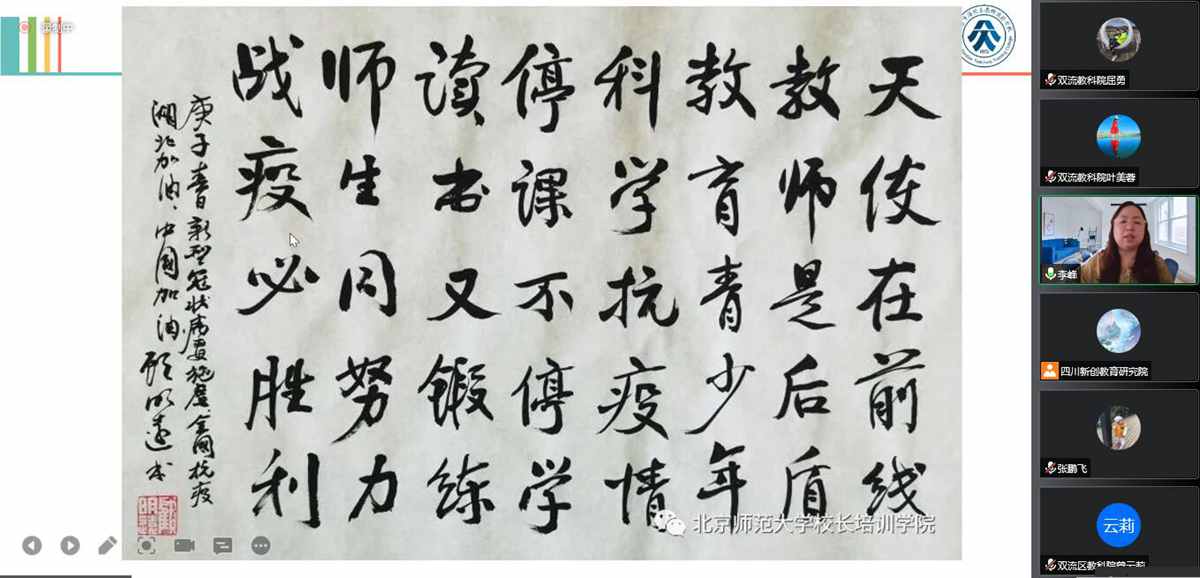 录制中
天使在前线
教师是后盾
教育青少年
科学抗疫情
停课不停学
读书又锻练
师生同努力
战疫必胜利
庚子春 新型冠状病毒施虐 全国抗疫
湖北加油、中国加油 顾明远书
北京师范大学校长培训学院
双流教科院屈勇
双流教科院叶美蓉
李峰
四川新创教育研究院
张鹏飞
云莉
双流区教科院曾云莉